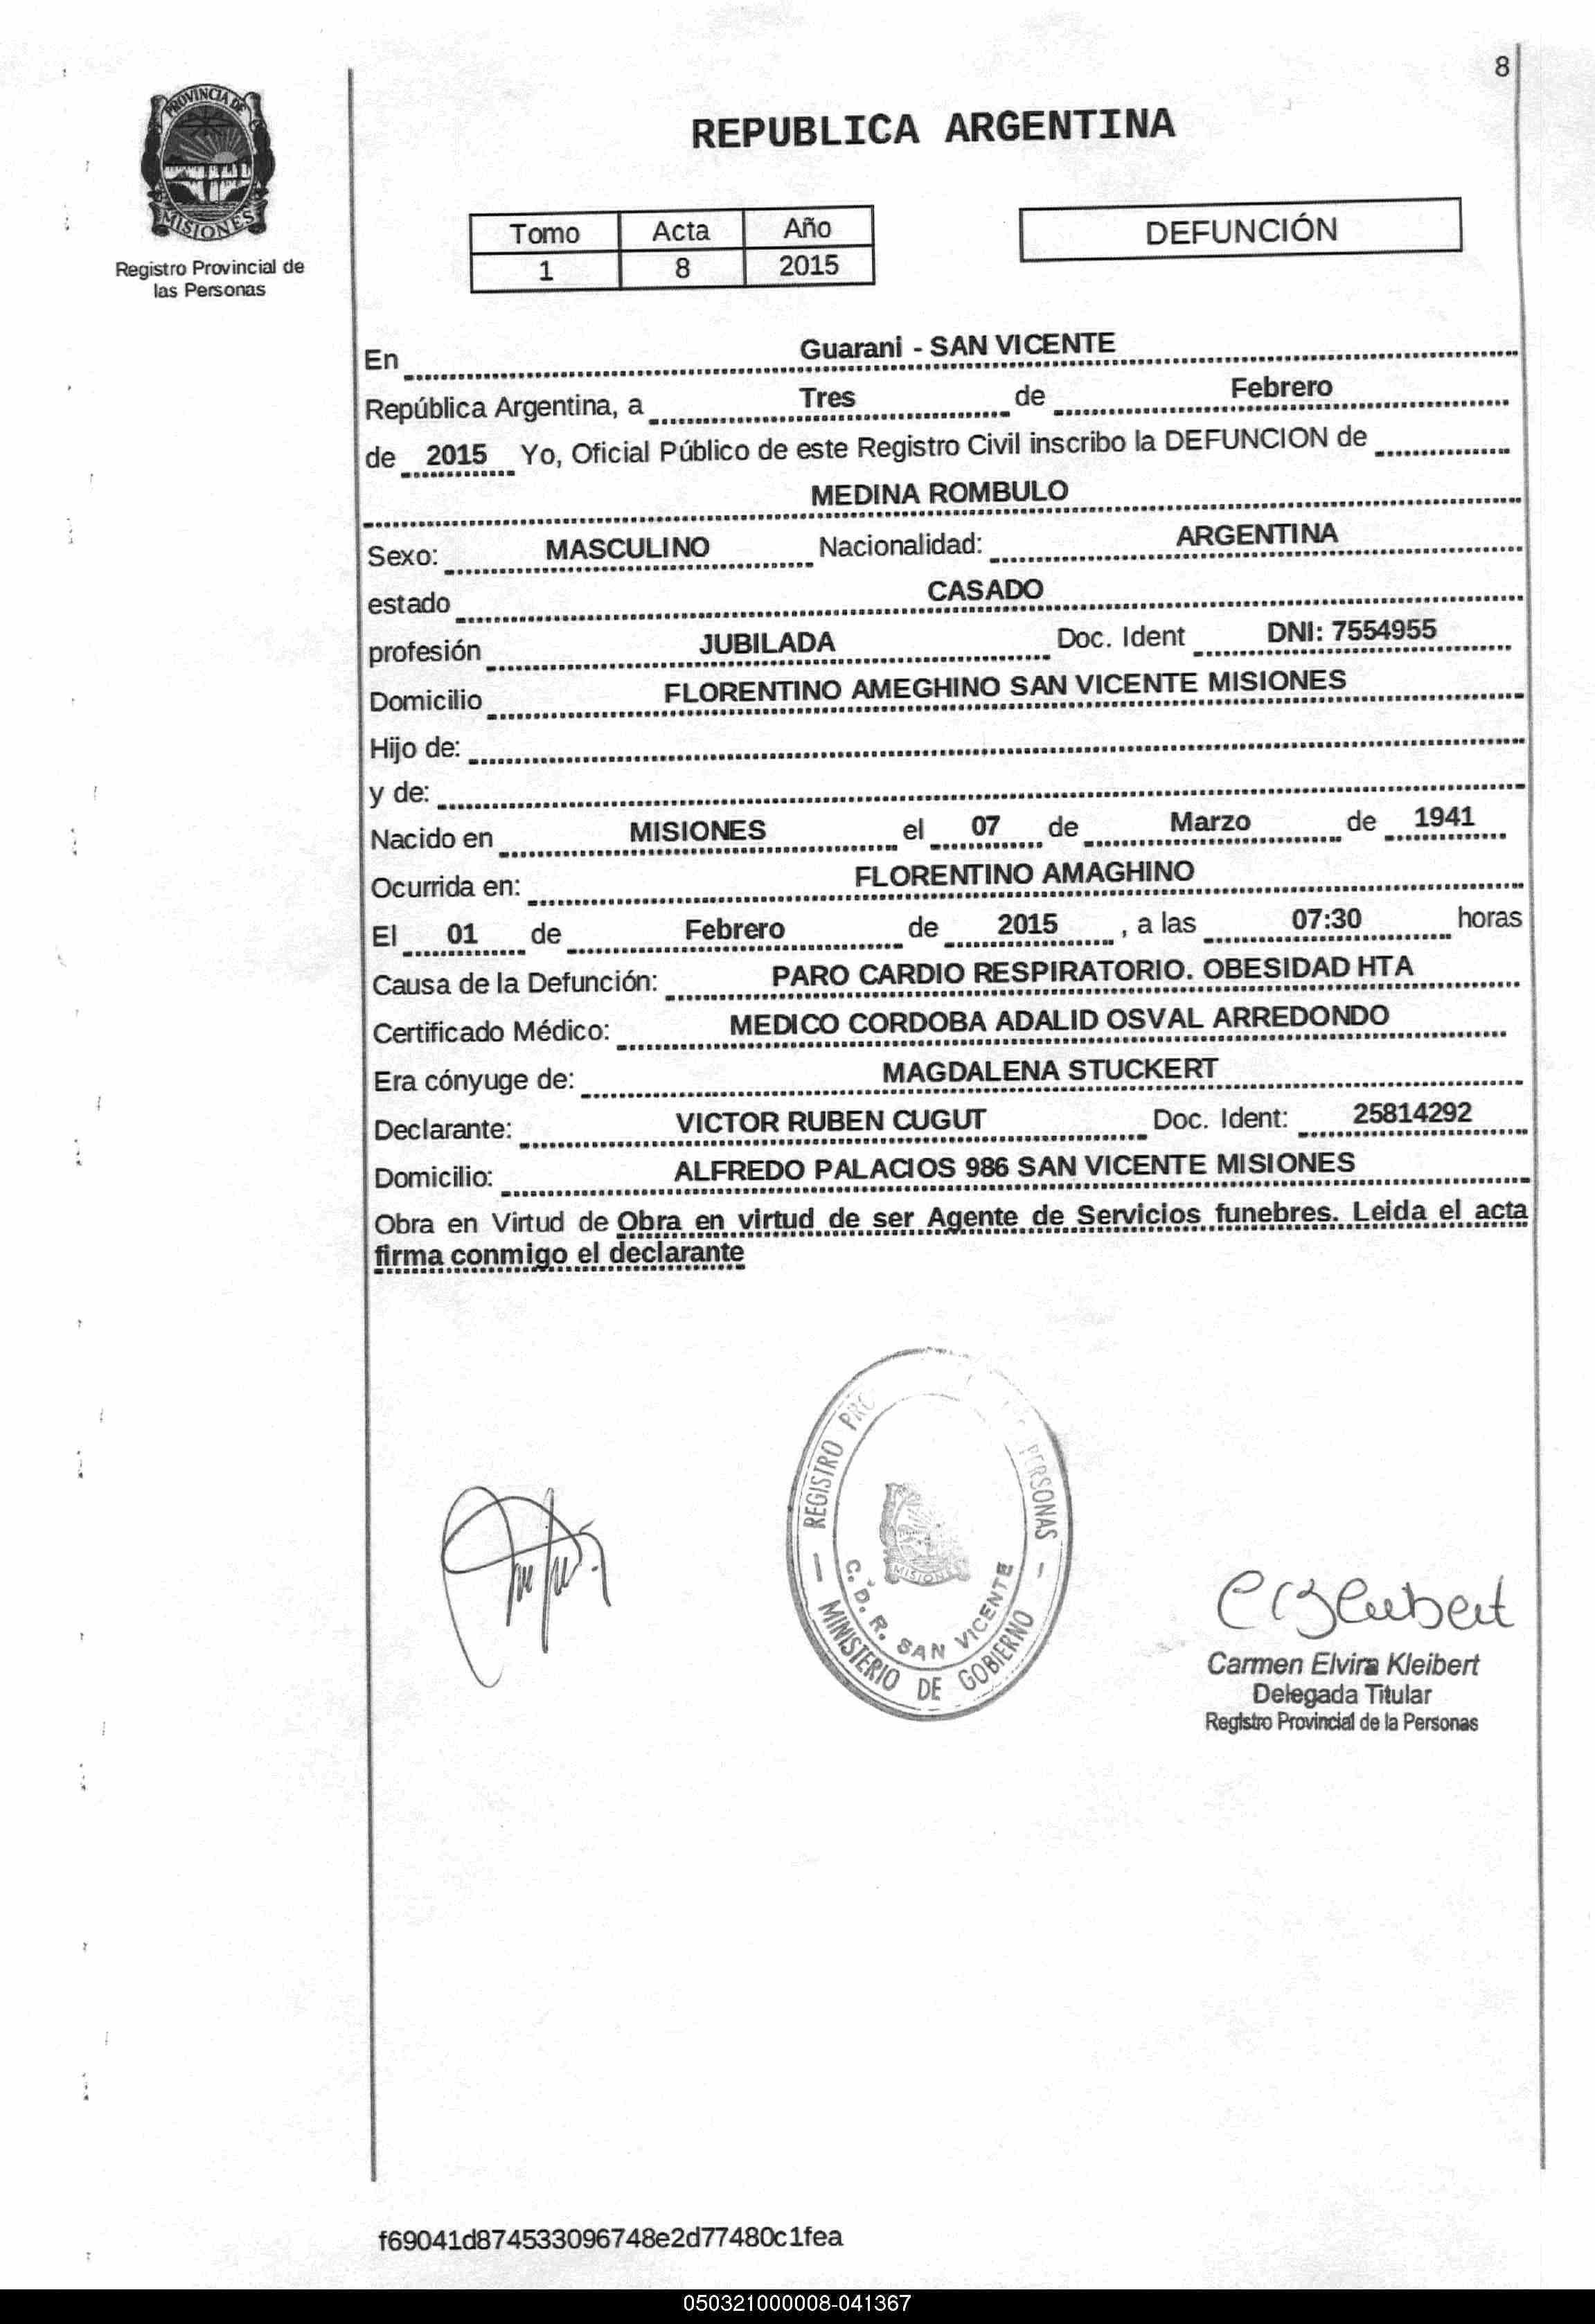 8
PROVINCIA DE
MISIONES
Registro Provincial de
las Personas
REPUBLICA ARGENTINA
Tomo Acta Año
1 8 2015
DEFUNCIÓN
En Guarani - SAN VICENTE
República Argentina, a Tres de Febrero
de 2015 Yo, Oficial Público de este Registro Civil inscribo la DEFUNCION de
MEDINA ROMBULO
Sexo: MASCULINO Nacionalidad: ARGENTINA
estado CASADO
profesión JUBILADA Doc. Ident DNI: 7554955
Domicilio FLORENTINO AMEGHINO SAN VICENTE MISIONES
Hijo de:
y de:
Nacido en MISIONES el 07 de Marzo de 1941
Ocurrida en: FLORENTINO AMAGHINO
El 01 de Febrero de 2015 , a las 07:30 horas
Causa de la Defunción: PARO CARDIO RESPIRATORIO. OBESIDAD HTA
Certificado Médico: MEDICO CORDOBA ADALID OSVAL ARREDONDO
Era cónyuge de: MAGDALENA STUCKERT
Declarante: VICTOR RUBEN CUGUT Doc. Ident: 25814292
Domicilio: ALFREDO PALACIOS 986 SAN VICENTE MISIONES
Obra en Virtud de Obra en virtud de ser Agente de Servicios funebres. Leida el acta
firma conmigo el declarante
REGISTRO PRO PERSONAS
MISIONES
C. D. R. SAN VICENTE
MINISTERIO DE GOBIERNO
Carmen Elvira Kleibert
Delegada Titular
Registro Provincial de la Personas
f69041d874533096748e2d77480c1fea
050321000008-041367